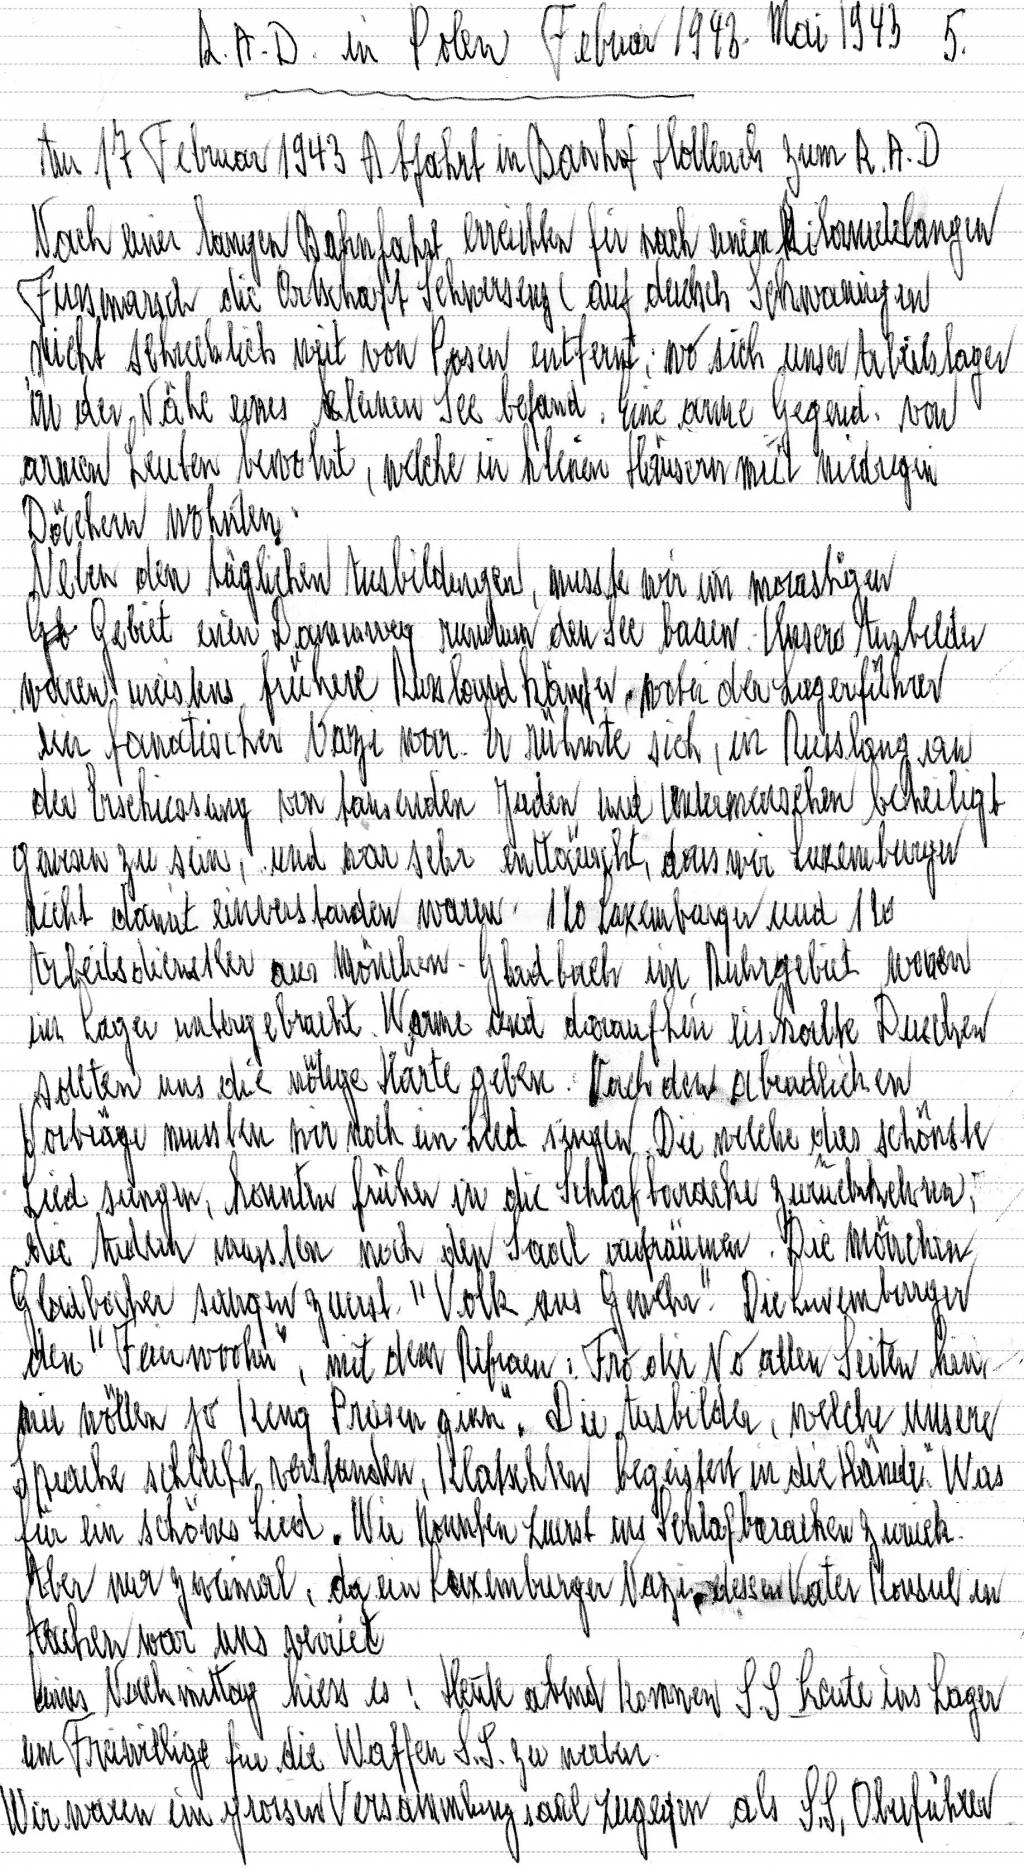 R.A.D. in Polen Februar 1943. Mai 1943 5.
Am 17 Februar 1943 Abfahrt in Banhof Hollerich zum R.A.D
Nach einer langen Bahnfahrt erreichten fir nach einem Kilometerlangen
Fussmarsch die Ortschaft Schwersenz ( auf deutsch Schwaningen
nicht schrecklich weit von Posen entfernt, wo sich unser Arbeitslager
in der Nähe eines kleinen See befand. Eine arme Gegend. von
armen Leuten bewohnt, welche in kleinen Häusern mit niedrigen
Dächern wohnten.
Neben den täglichen Ausbildungen, musste wir im morastigen
Gebiet einen Dammweg rundum den See bauen. Unsere Ausbilder
waren meistens frühere Russland Kämpfer, wobei der Lagerführer
ein fanatischer Nazi war. Er rühmte sich, in Russland an
der Erschiessung von tausenden Juden und Untermenschen beteiligt
gewesen zu sein, und war sehr enttäuscht, dass wir Luxemburger
nicht damit einverstanden waren. 120 Luxemburger und 120
Arbeitsdienstler aus Mönchen-Gladbach im Ruhrgebiet waren
im Lager untergebracht. Warme und daraufhin eiskalte Duschen
sollten uns die nötige Härte geben. Nach den abendlichen
Vorträge mussten wir noch ein Lied singen. Die welche das schönste
Lied sungen, konnten früher in die Schlafbaracke zurückkehren,
die Andern mussten noch den Saal aufräumen. Die Mönchen
Gladbacher sungen zuerst. "Volk ans Gewehr". Die Luxemburger
den "Feierwoohn", mit dem Refraen: Fro dir No allen Seiten hin,
mir wöllen jo keng Preisen ginn". Die Ausbilder, welche unsere
Sprache schlecht verstanden, klatschten begeistert in die Hände. Was
für ein schönes Lied. Wir konnten zuerst ins Schlafbaracken zurück.
Aber nur zweimal, da ein Luxemburger Nazi, dessen Vater Konsul in
Aachen war uns verriet
Eines Nachmittag hiess es: Heute abend kommen S.S Leute ins Lager
um Freiwillige für die Waffen S.S. zu werben.
Wir waren ein grossen Versammlungsaal zugegen als S.S, Oberführer